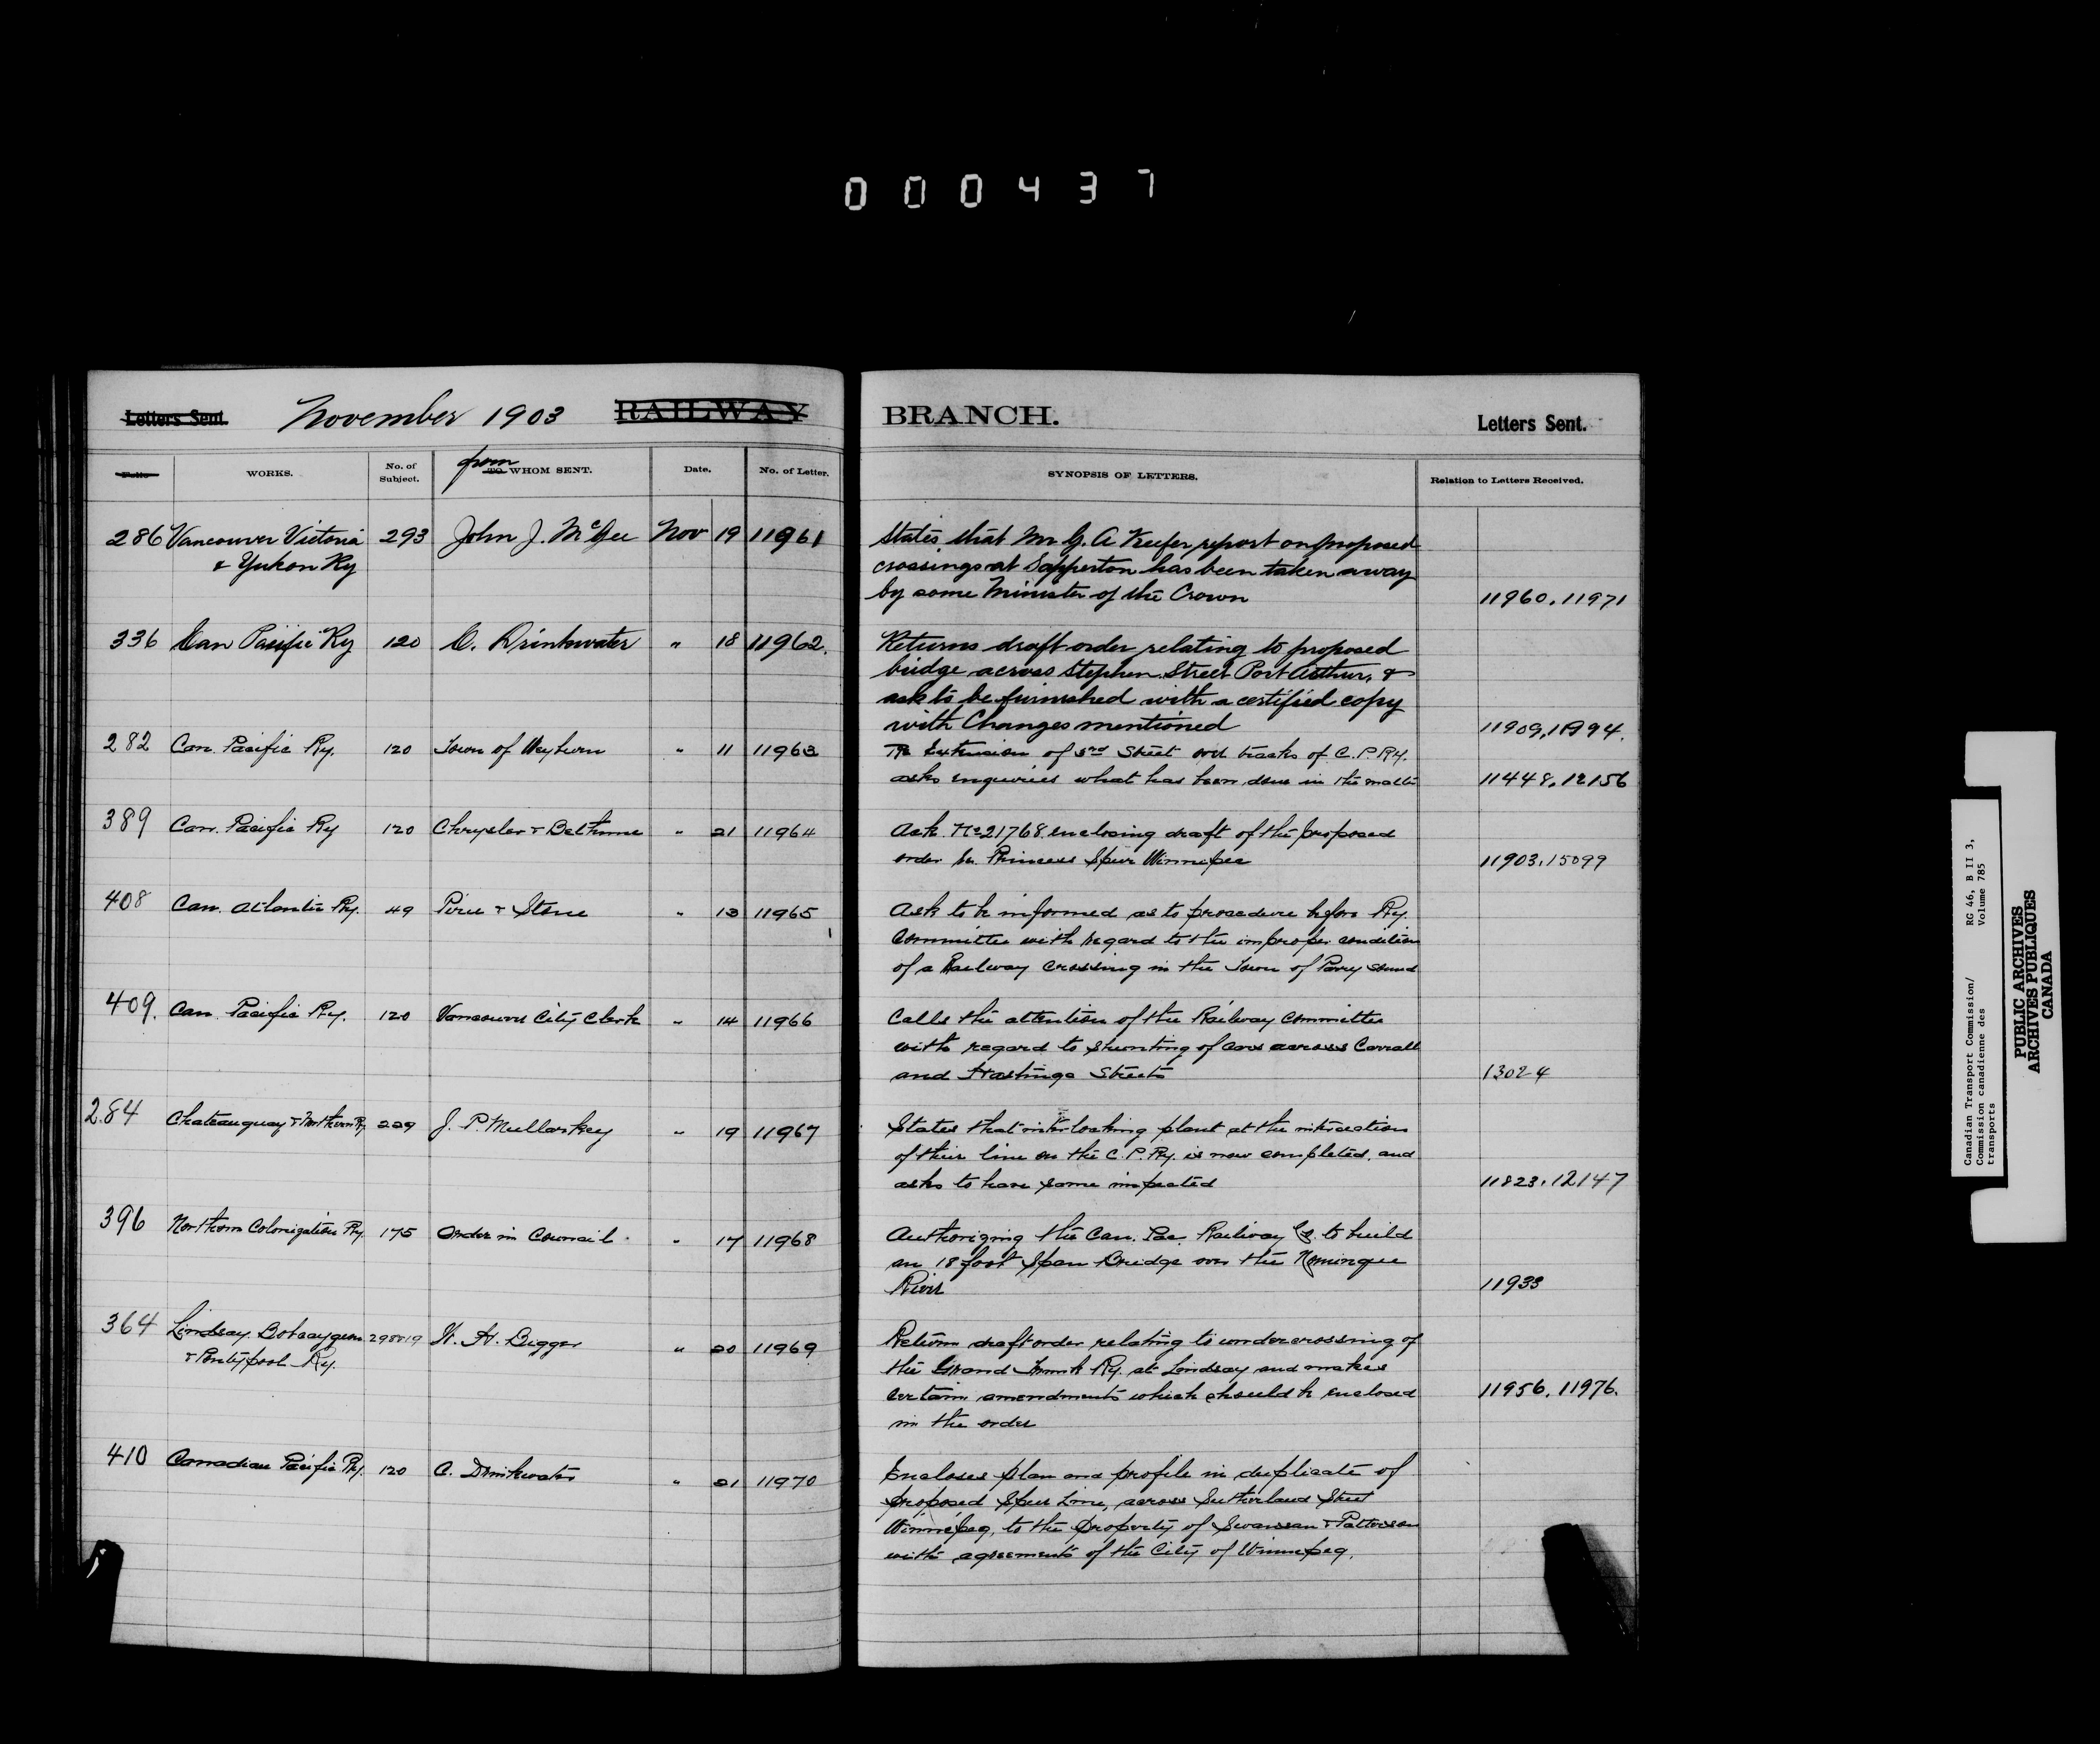 000437
Letters Sent. November 1903 RAILWAY BRANCH. Letters Sent.
Folio WORKS. No. of Subject. from TO WHOM SENT. Date. No. of Letter. SYNOPSIS OF LETTERS. Relation to Letters Received.
286 Vancouver Victoria 293 John J. McGee Nov 19 11961 States that Mr G. A Keefer report on proposed
& Yukon Ry crossings at Sapperton has been taken away
by some Minister of the Crown 11960.11971
336 Can Pacific Ry 120 C. Drinkwater " 18 11962. Returns draft order relating to proposed
bridge across Stephen Street Port Arthur, &
ask to be furnished with a certified copy
with Changes mentioned 11909,
282 Can. Pacific Ry. 120 Town of Weyburn " 11 11963 Re Extension of 3rd Street over tracks of C.P.Ry.
asks enquiries what has been done in the matter 11448.12156
389 Can. Pacific Ry 120 Chrysler & Bethune " 21 11964 Ack. No 21768 enclosing draft of the proposed
order re. Princess Spur Winnipeg 11903,15099
408 Can. Atlantic Ry. 49 & Stone " 13 11965 Ask to be informed as to procedure before Ry.
Committee with regard to the improper condition
of a Railway crossing in the Town of Parry Sound
409. Can Pacific Ry. 120 Vancouver City Clerk " 14 11966 Calls the attention of the Railway Committee
with regard to shunting of cars across Carrall
and Hastings Streets 13024
284 Chateauguay & Northern Ry. 229 J. P. Mullarkey " 19 11967 States that interlocking plant at the intersection
of their line on the C.P.Ry. is now completed, and
asks to have same inspected 11823.12147
396 Northern Colonization Ry. 175 Order in Council " 17 11968 Authorizing the Can. Pac. Railway Co. to build
an 18 foot Span Bridge over the Nominque
River 11933
364 Lindsay Bobcaygeon 298819 W. H. Biggar " 20 11969 Return draft order relating to undercrossing of
& Pontypool Ry. the Grand Trunk Ry. at Lindsay and makes
certain amendments which should be enclosed 11956.11976.
in the order
410 Canadian Pacific Ry. 120 C. Drinkwater " 21 11970 Encloses plan and profile in duplicate of
proposed Spur Line, across Sutherland Street
Winnipeg, to the property of Swanson & Patterson
with agreements of the City of Winnipeg.
Canadian Transport Commission/ RG 46, B II 3,
Commission canadienne des Volume 785
transports
PUBLIC ARCHIVES
ARCHIVES PUBLIQUES
CANADA